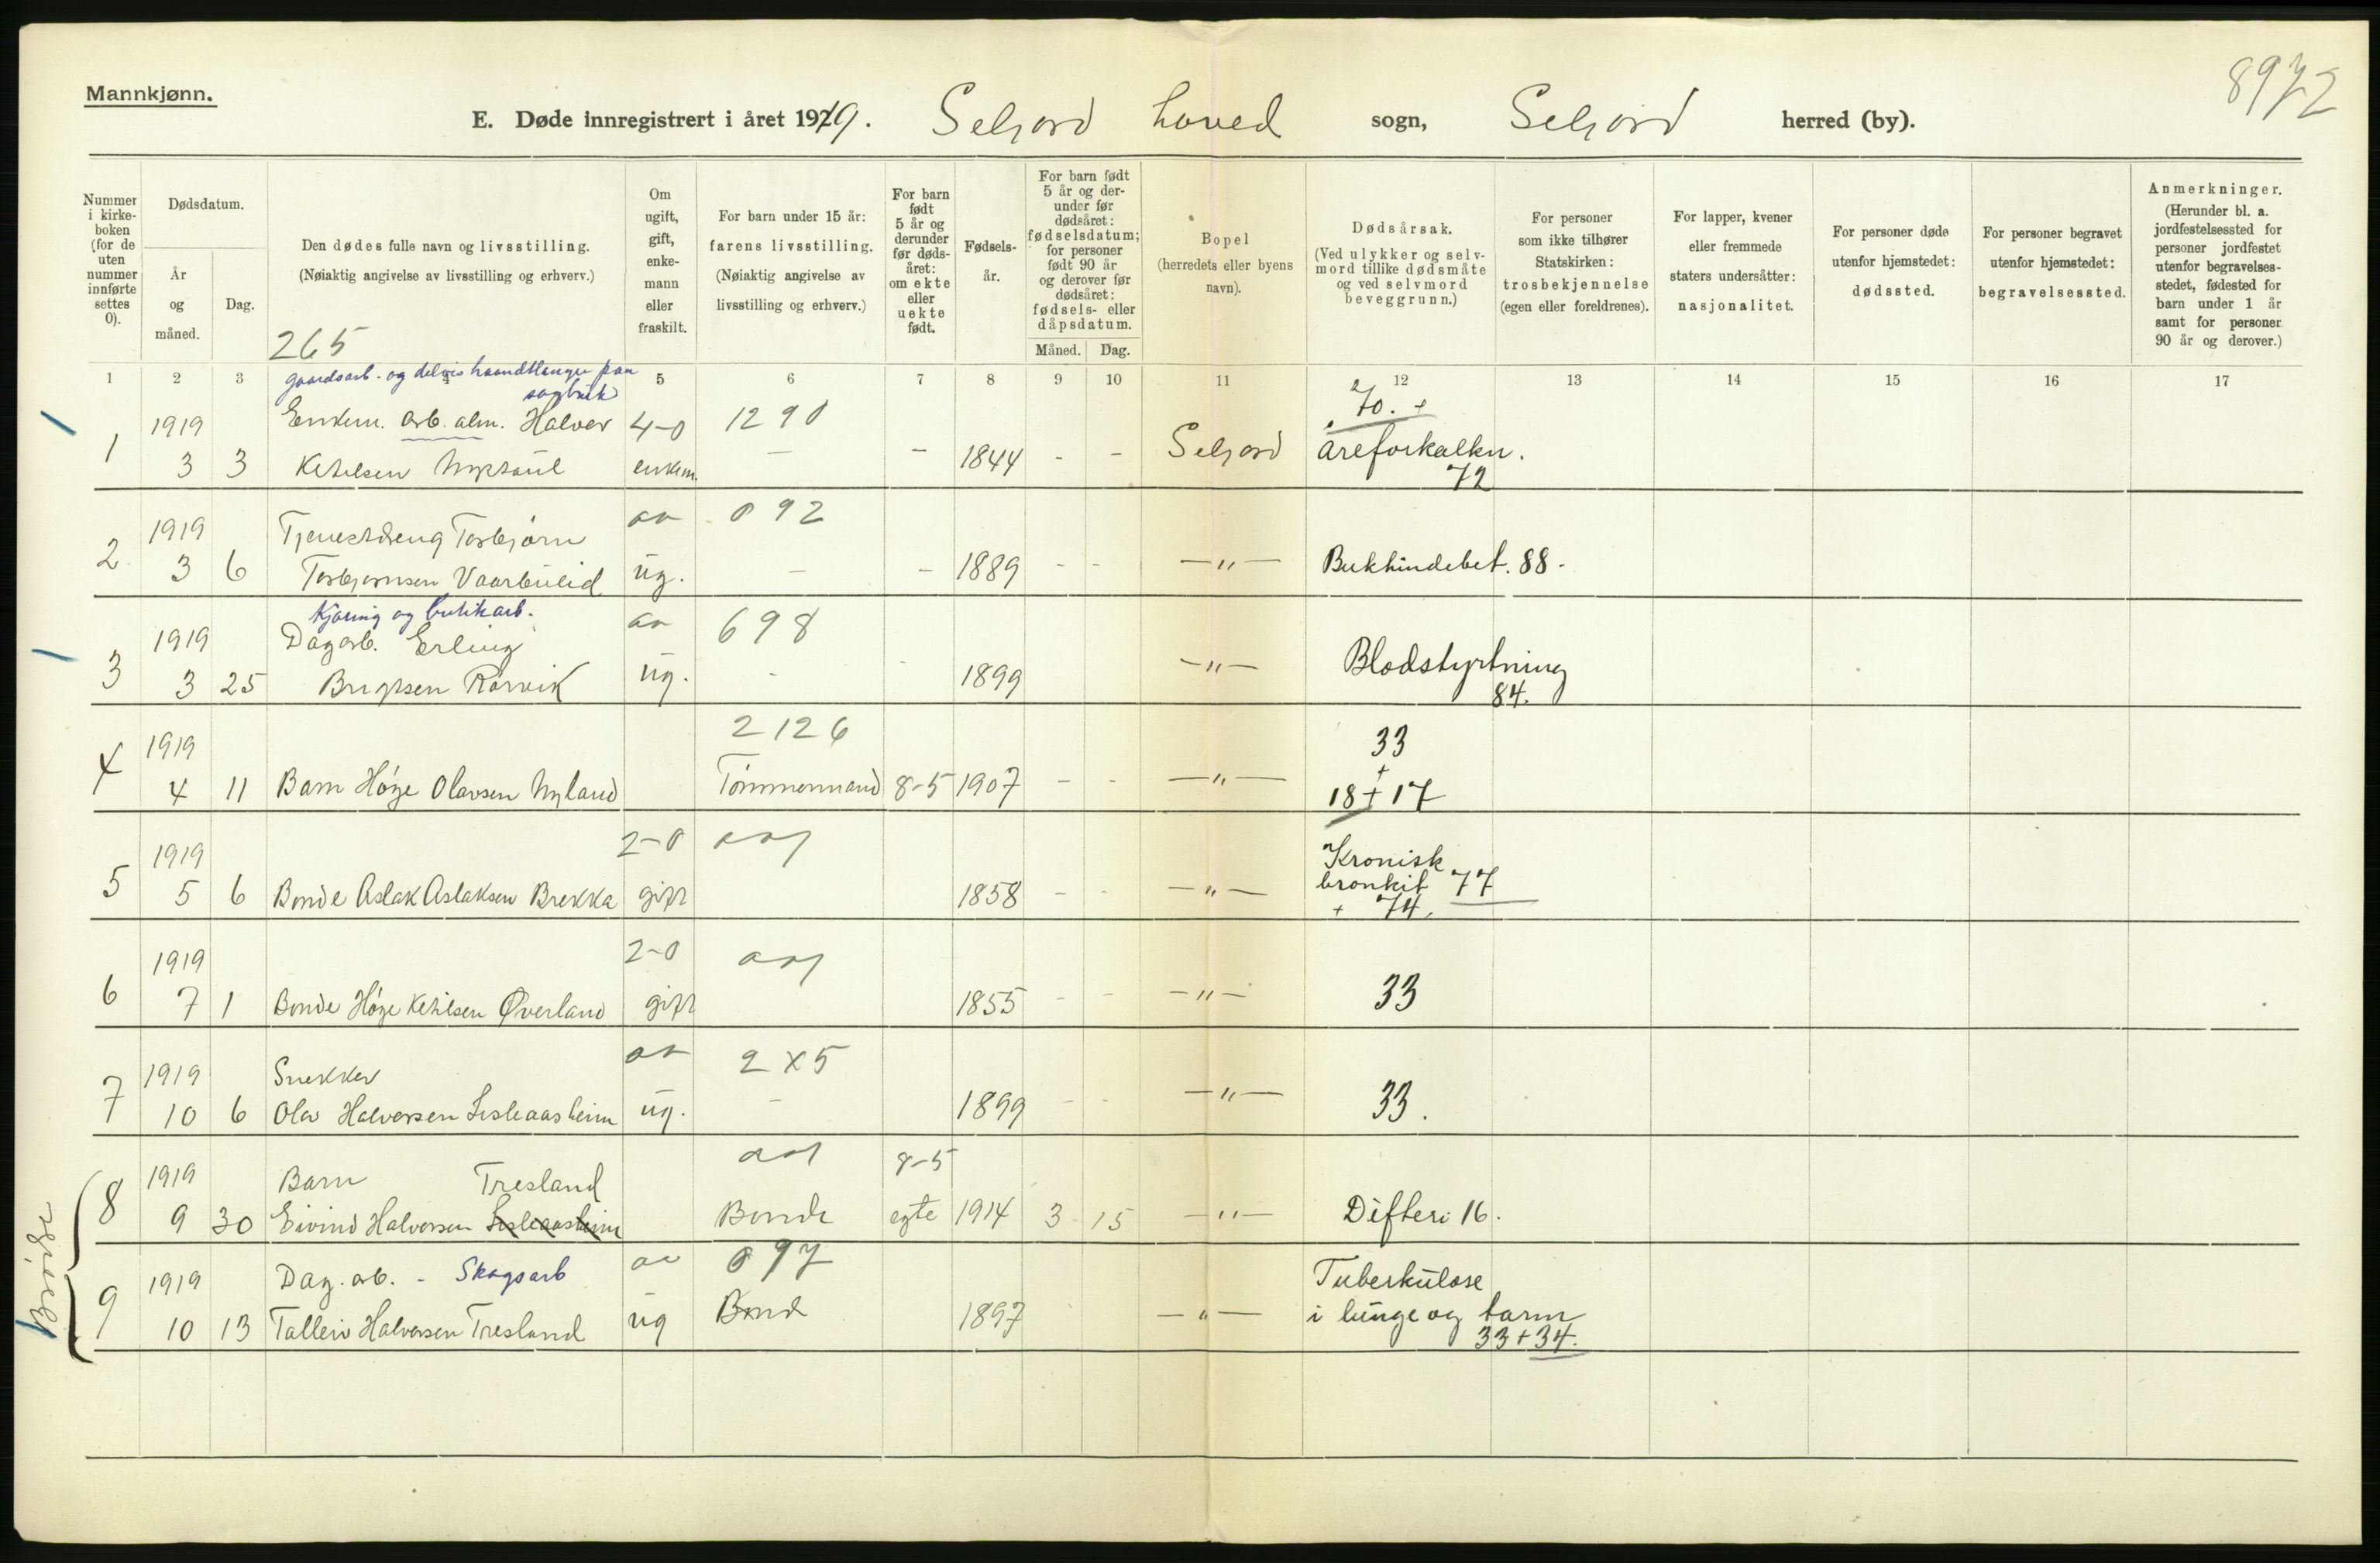 Mannkjønn.
8972
E. Døde innregistrert i året 1919. Seljord hoved sogn, Seljord herred (by).
Nummer i kirke-boken (for de uten nummer innførte settes 0).
Dødsdatum.
År og måned.
Dag.
Den dødes fulle navn og livsstilling.
(Nøiaktig angivelse av livsstilling og erhverv.)
265
Om ugift, gift, enke-mann eller fraskilt.
For barn under 15 år:
farens livsstilling.
(Nøiaktig angivelse av livsstilling og erhverv.)
For barn født 5 år og derunder før døds-året: om ekte eller uekte født.
Fødsels-år.
For barn født 5 år og der-under før dødsåret: fødselsdatum; for personer født 90 år og derover før dødsåret: fødsels- eller dåpsdatum.
Måned. Dag.
Bopel
(herredets eller byens navn).
Dødsårsak.
(Ved ulykker og selv-mord tillike dødsmåte og ved selvmord beveggrunn.)
For personer som ikke tilhører Statskirken: trosbekjennelse (egen eller foreldrenes).
For lapper, kvener eller fremmede staters undersåtter: nasjonalitet.
For personer døde utenfor hjemstedet: dødssted.
For personer begravet utenfor hjemstedet: begravelsessted.
Anmerkninger.
(Herunder bl. a. jordfestelsessted for personer jordfestet utenfor begravelses-stedet, fødested for barn under 1 år samt for personer 90 år og derover.)
1 2 3 4 5 6 7 8 9 10 11 12 13 14 15 16 17
gaardsarb. og delvis haandtlanger paa
sagbruk
1919 Enkem. arb. alm. Halvor 4-0 1290 70. +
1 3 3 Ketilsen enkem. - - 1844 - - Seljord åreforkalkn.
72
1919 Tjenestdreng Torbjørn 092
2 3 6 Torbjørnsen ug. - - 1889 - - -"- Bukhindebet. 88.
Kjøring og butikarb.
1919 Dagarb. Erling 698
3 3 25 Rørvik ug. - - 1899 -"- Blodstyrtning
84.
1919 2126 33
+
4 4 11 Barn Høge Olavsen Nyland Tømmermand 8-5 1907 - - -"- 18+17
1919 2-0 Kronisk
5 5 6 Bonde Aslak Aslaksen Brekka gift 1858 - - -"- bronkit 77
+ 74.
1919 2-0
6 7 1 Bonde Høge Ketilsen Øverland gift 1855 - - -"- 33
1919 Snekker 2x5
7 10 6 Olav Halvorsen Lisleaasheim ug. - 1899 - - -"- 33.
1919 Barn Tresland 8-5
8 9 30 Eivind Halvorsen Lisleaasheim Bonde egte 1914 3 15 -"- Difteri 16.
Brødre
1919 Dag. arb. - Skogsarb 097 Tuberkulose
9 10 13 Talleiv Halvorsen Tresland ug Bond 1897 -"- i lunge og tarm
33+34.